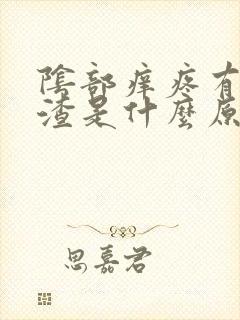 陰部痒疼有
渣是什麼原
思嘉君